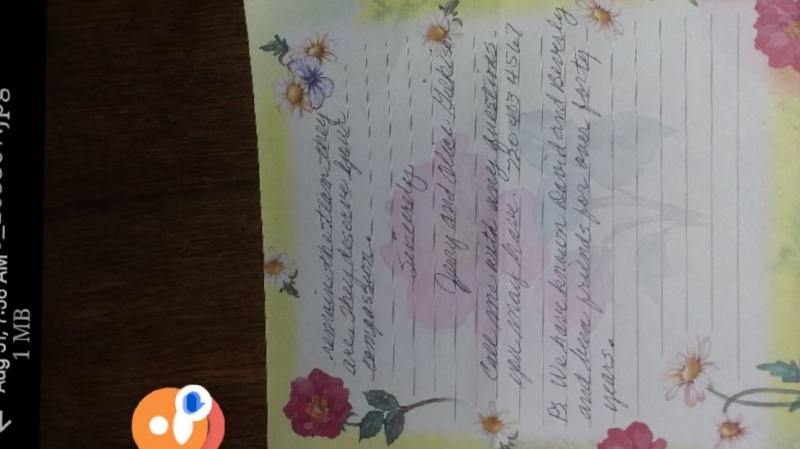 Aug 31, 7:58 AM
1 MB
remain the team they
are. They deserve your
compassion.
Sincerely
Jerry and
Call me with any questions.
you may have. 720 453 4567
Ps We have known David and Beverly
and been friends for over forty
years.